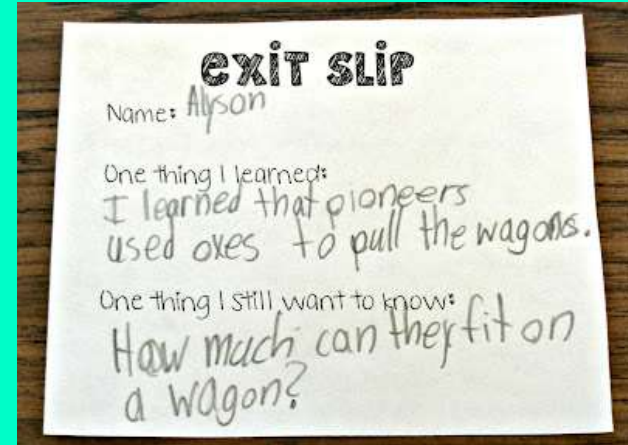 exit slip
Name: Alyson
One thing I learned:
I learned that pioneers
used oxes to pull the wagons.
One thing I still want to know:
How much can they fit on
a wagon?